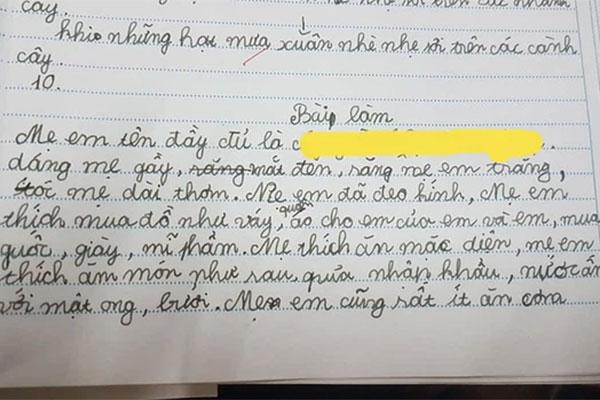 cây.
Khi những hạt mưa xuân nhè nhẹ rơi trên các cành
cây.
10.
Bài làm
Mẹ em tên đầy đủ là
dáng mẹ gầy, răng mắt đen, răng mẹ em thẳng,
tóc mẹ dài thơm. Mẹ em đã đeo kính, Mẹ em
thích mua đồ như váy, quần áo cho em của em và em, mua
guốc, giày, mĩ phẩm. Mẹ thích ăn mặc diện, mẹ em
thích ăm món như sau quửa nhập khẩu, nước ấm
với mật ong, bưởi. Mẹ em cũng rất ít ăn cơm